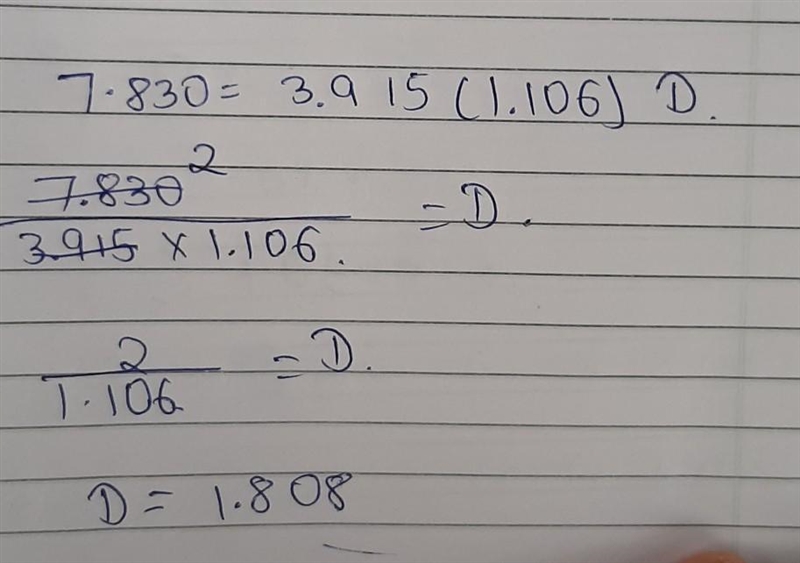 7.830 = 3.915 (1.106) D.
7.830 2
3.915 × 1.106. = D.
2
1.106 = D.
D = 1.808